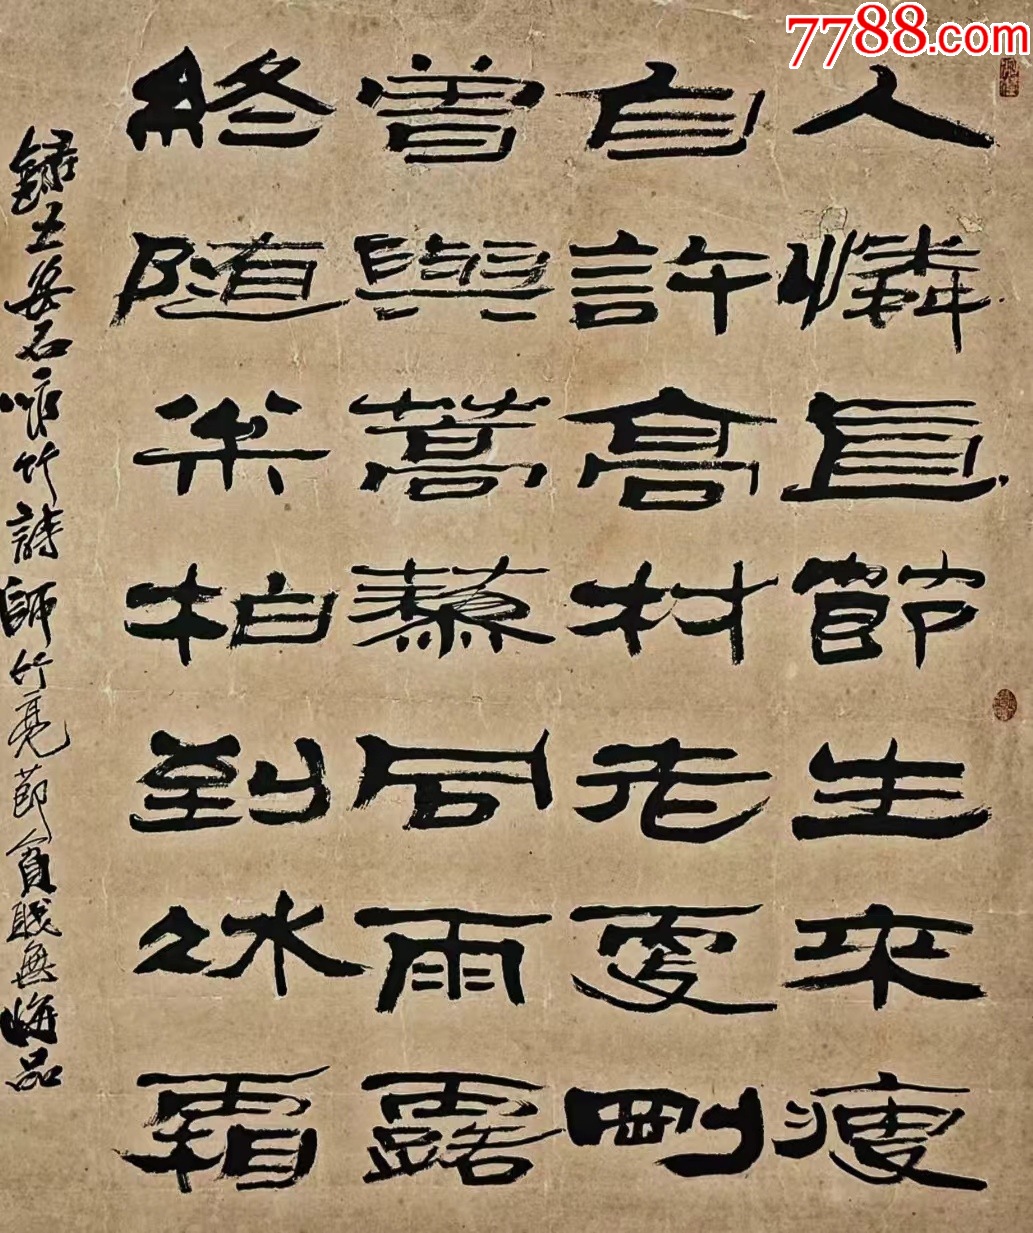 7788.com
人憐直節生來瘦
自許高材老更剛
曾與蒿藜同雨露
終隨松柏到冰霜
錄王安石咏竹詩師竹亮節負職無悔品